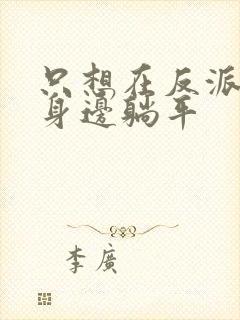 只想在反派
身邊躺平
李廣